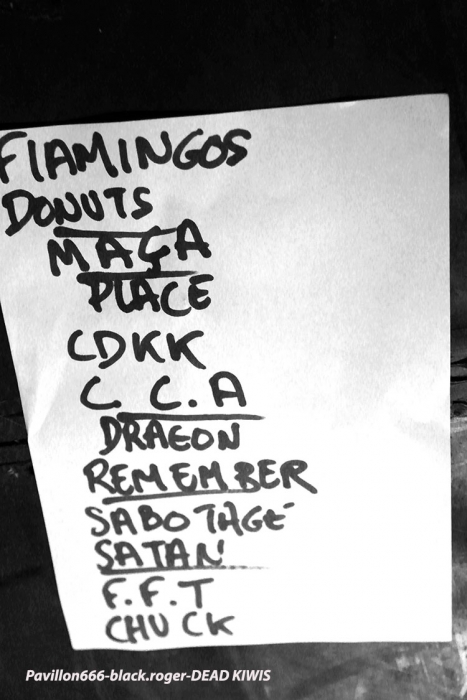 FLAMINGOS
DONUTS
MAÇA
PLACE
CDKK
C.C.A
DRAGON
REMEMBER
SABOTAGE
SATAN
F.F.T
CHUCK
Pavillon666-black.roger-DEAD KIWIS